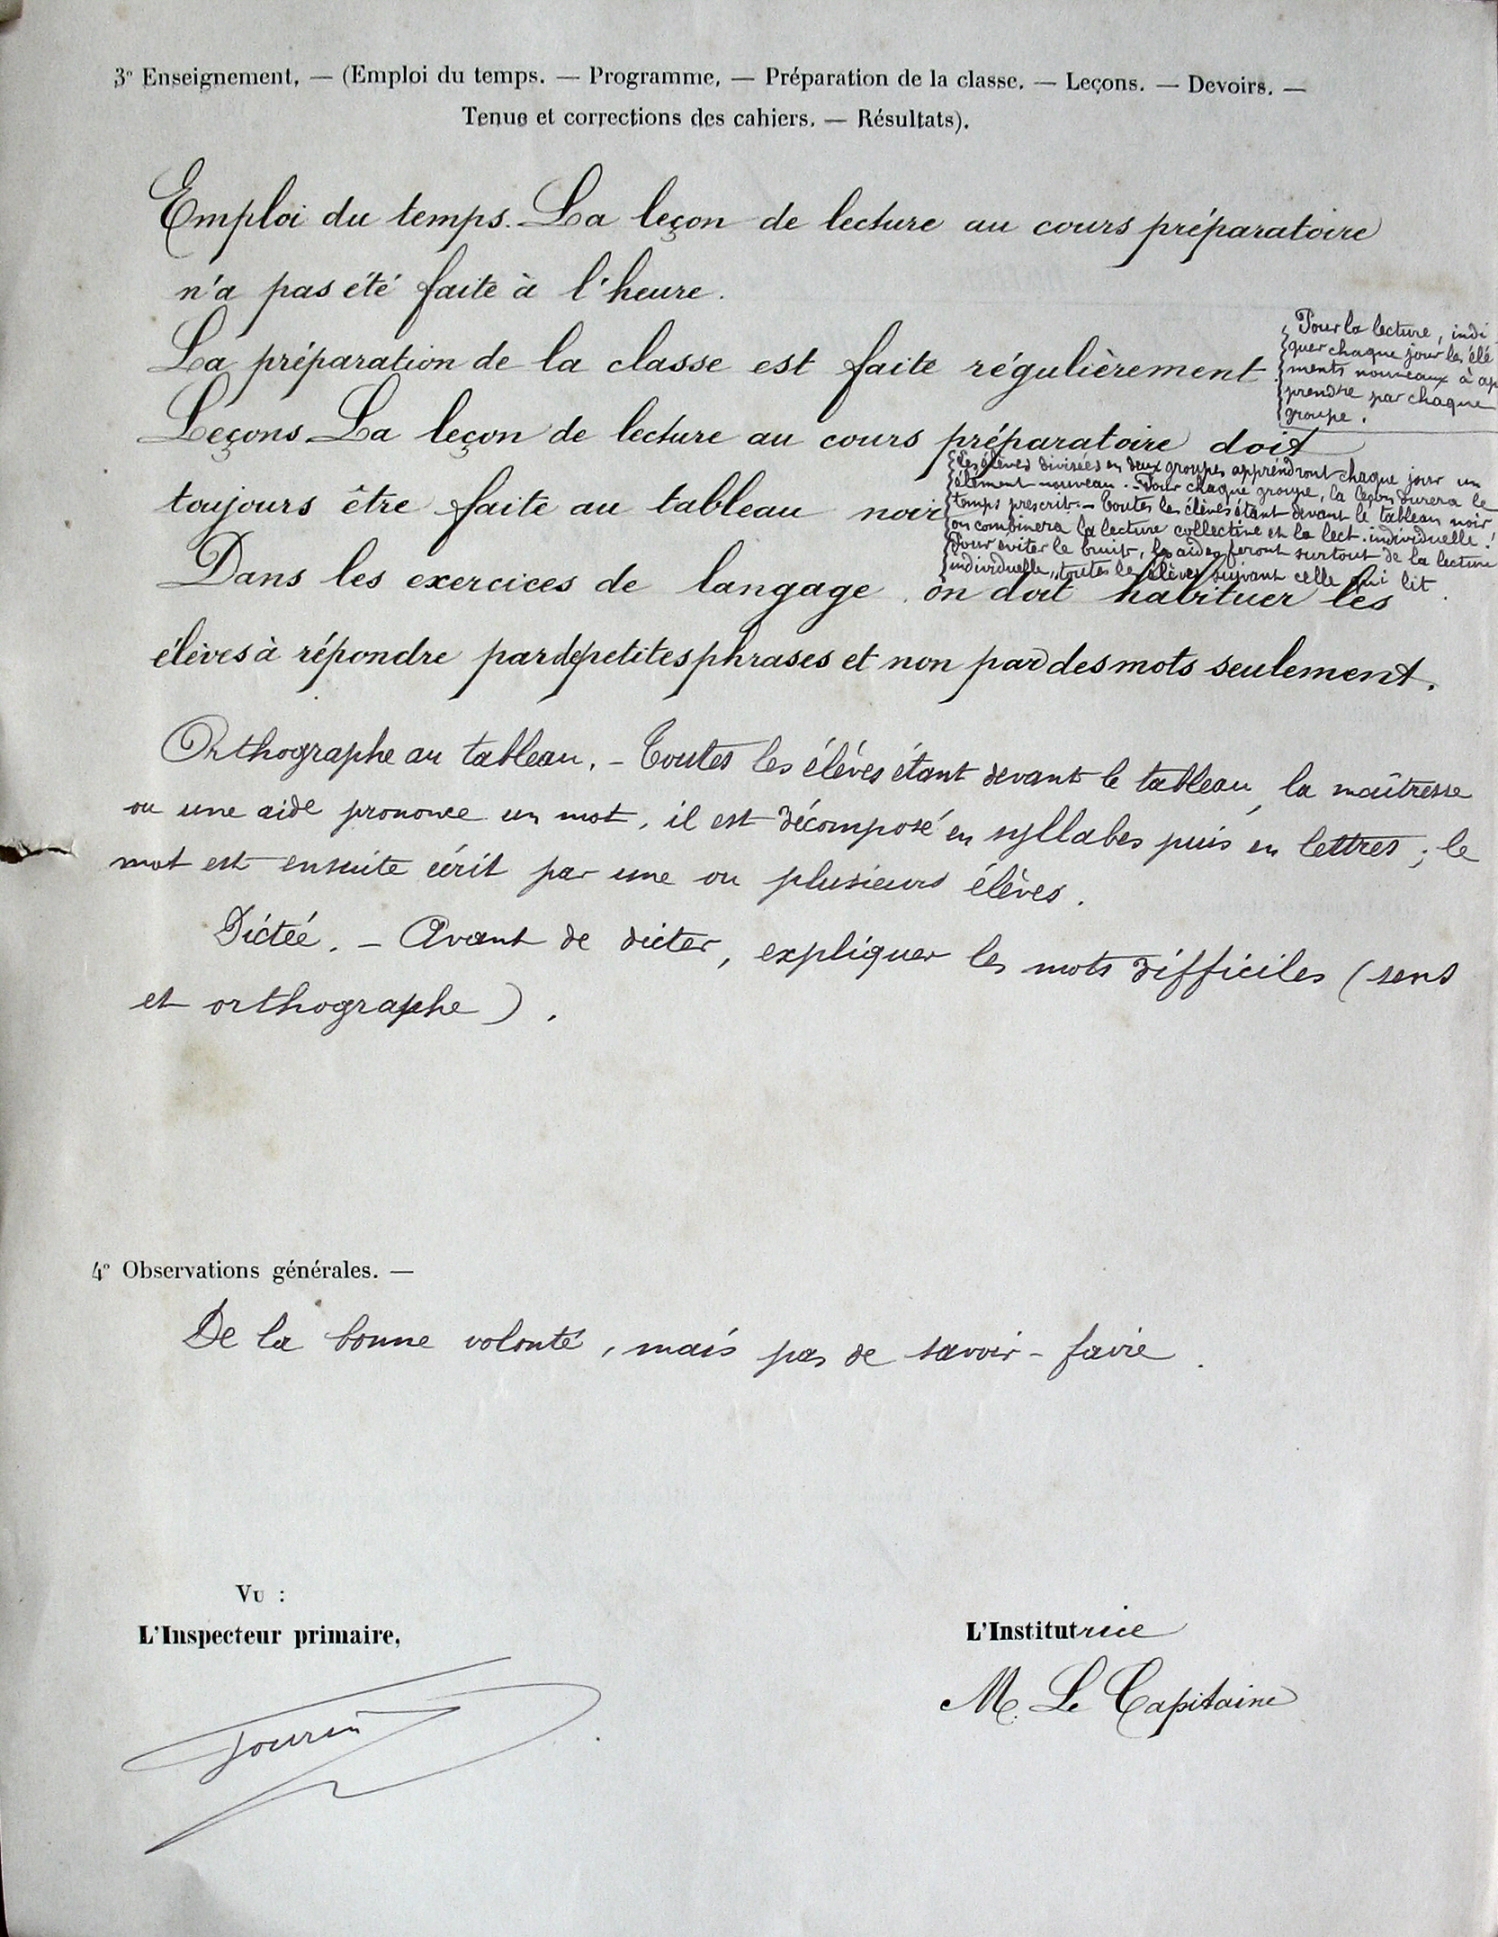 3º Enseignement, — (Emploi du temps. — Programme, — Préparation de la classe. — Leçons. — Devoirs. —
Tenue et corrections des cahiers. — Résultats).
Emploi du temps. La leçon de lecture au cours préparatoire
n'a pas été faite à l'heure.
La préparation de la classe est faite régulièrement.
Pour la lecture, indi
quer chaque jour les élé
ments nouveaux à ap
prendre par chaque
groupe.
Leçons La leçon de lecture au cours préparatoire doit
toujours être faite au tableau noir
Les élèves divisées en deux groupes apprendront chaque jour un
élément nouveau. Pour chaque groupe, la leçon durera le
temps prescrit. — Toutes les élèves étant devant le tableau noir
on combinera la lecture collective et la lect. individuelle.
Pour éviter le bruit, les aides feront surtout de la lecture
individuelle, toutes les élèves suivant celle qui lit.
Dans les exercices de langage on doit habituer les
élèves à répondre par de petites phrases et non par des mots seulement.
Orthographe au tableau. – Toutes les élèves étant devant le tableau, la maîtresse
ou une aide prononce un mot, il est décomposé en syllabes puis en lettres ; le
mot est ensuite écrit par une ou plusieurs élèves.
Dictée. – Avant de dicter, expliquer les mots difficiles (sens
et orthographe).
4º Observations générales. —
De la bonne volonté, mais pas de savoir-faire.
Vu :
L'Inspecteur primaire,
L'Institutrice
M. Le Capitaine